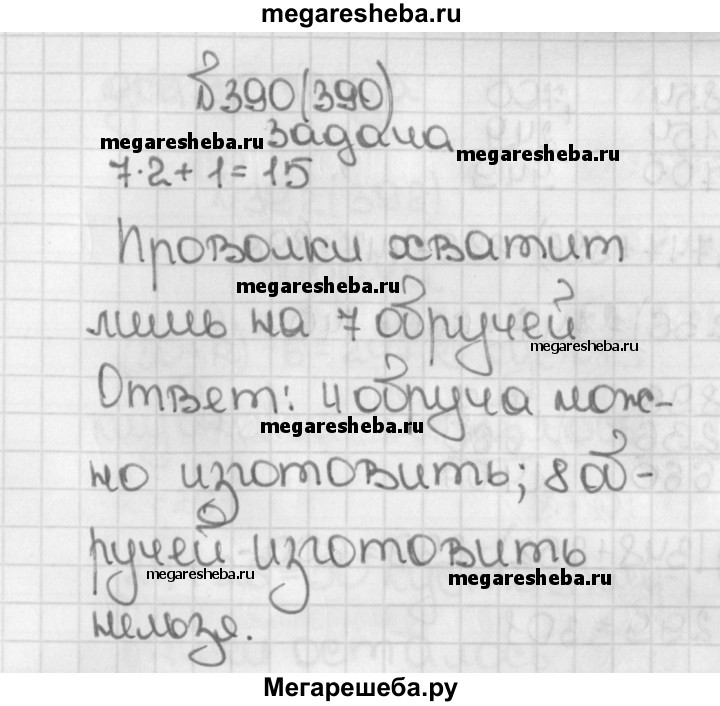 megaresheba.ru
№390(390)
megaresheba.ru задача megaresheba.ru
7·2+1=15
Проволки хватит
megaresheba.ru
лишь на 7 обручей
megaresheba.ru
Ответ: 4 обруча мож-
megaresheba.ru
но изготовить; 8 об-
ручей изготовить
megaresheba.ru megaresheba.ru
нельзя.
Мегарешеба.ру